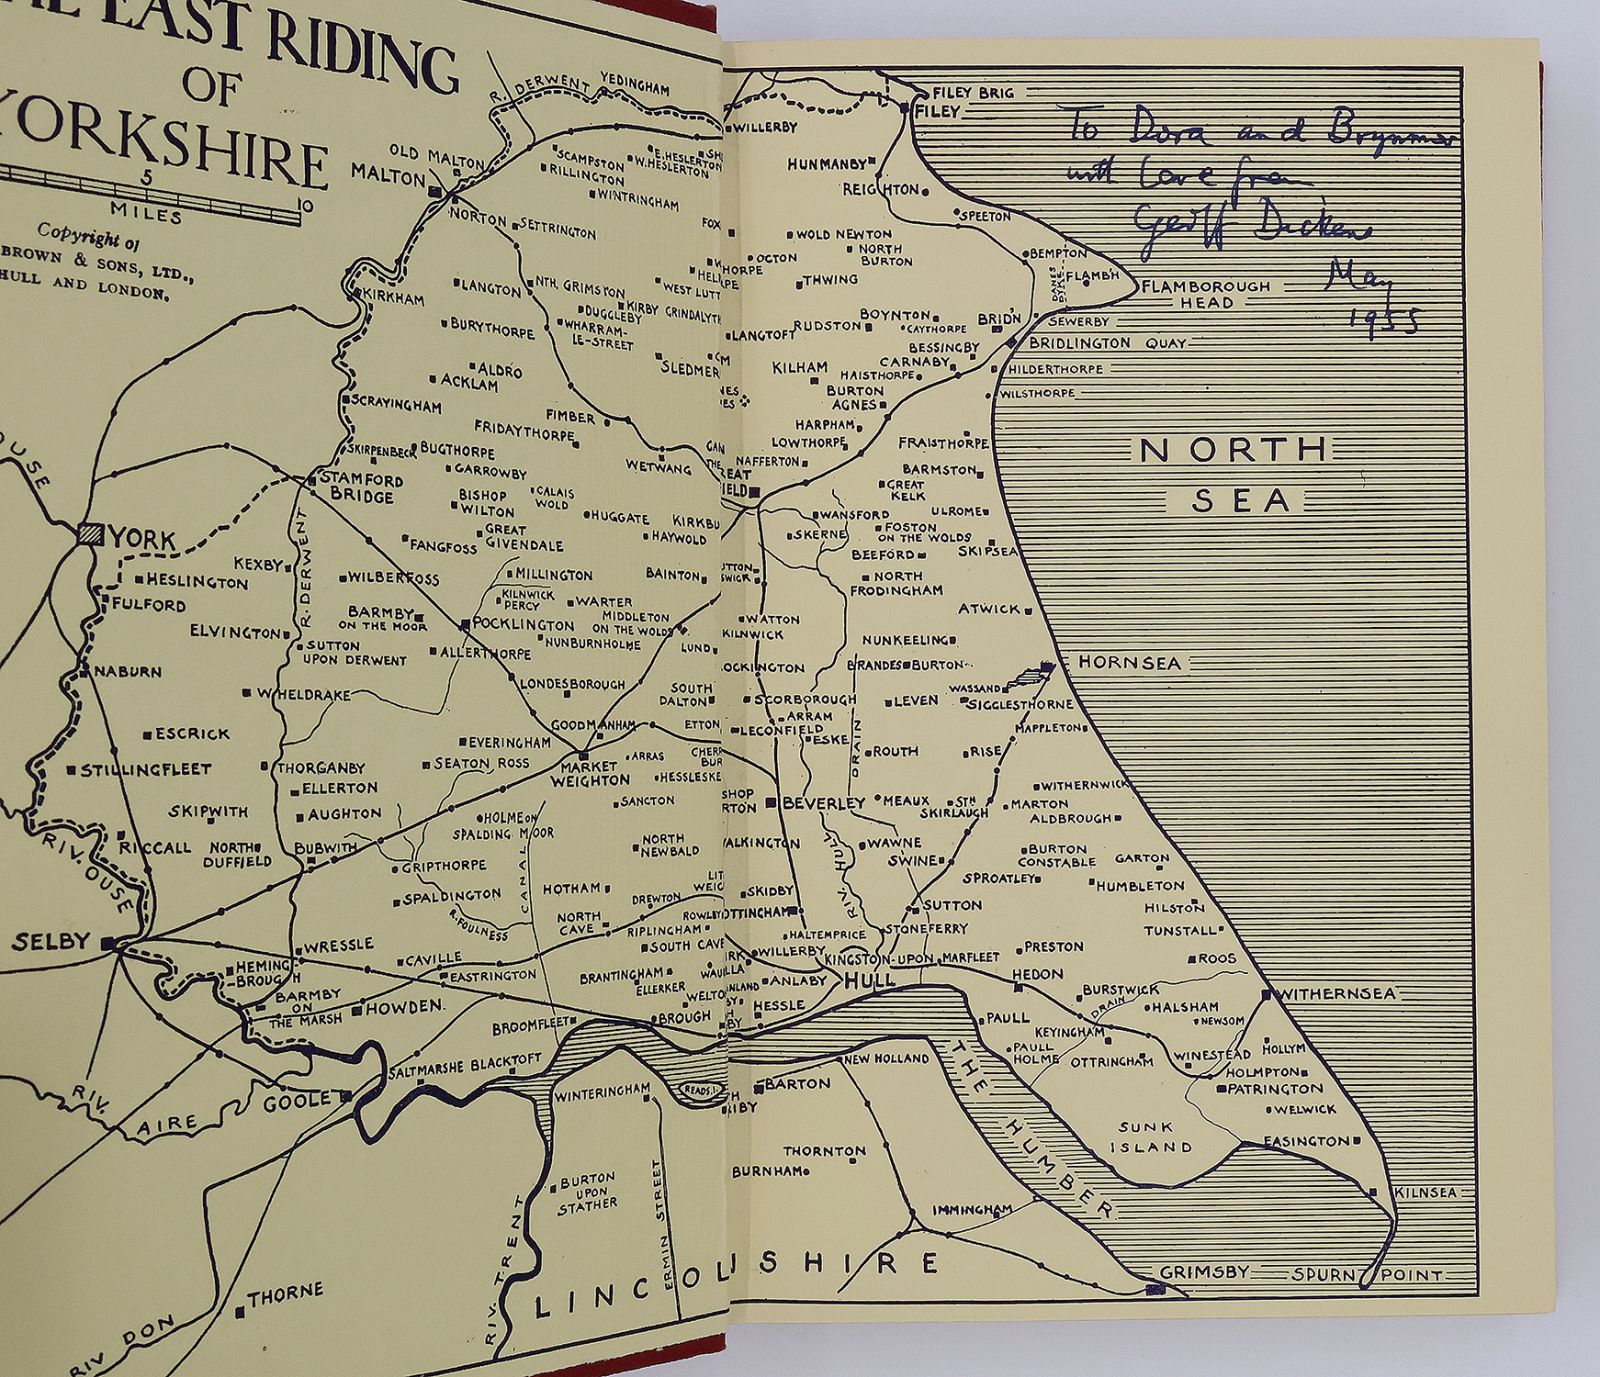 EAST RIDING
OF
YORKSHIRE
5
10
MILES
Copyright of
BROWN & SONS, LTD.,
HULL AND LONDON.
To Dora and Brynmor
with Love from
Geoff Dickens
May
1955
R. DERWENT
YEDINGHAM
OLD MALTON
MALTON
SCAMPSTON
E. HESLERTON
W. HESLERTON
RILLINGTON
WINTRINGHAM
NORTON
SETTRINGTON
KIRKHAM
LANGTON
NTH. GRIMSTON
WEST LUTT
KIRBY GRINDALYTH
DUGGLEBY
BURYTHORPE
WHARRAM-
LE-STREET
SLEDMER
ALDRO
ACKLAM
SCRAYINGHAM
FIMBER
FRIDAYTHORPE
SKIRPENBECK
BUGTHORPE
WETWANG
GARROWBY
STAMFORD
BRIDGE
BISHOP
WILTON
CALAIS
WOLD
HUGGATE
KIRKBU
GREAT
GIVENDALE
HAYWOLD
FANGFOSS
OUSE
YORK
KEXBY
HESLINGTON
FULFORD
WILBERFOSS
MILLINGTON
BAINTON
KILNWICK
PERCY
WARTER
BARMBY
ON THE MOOR
MIDDLETON
ON THE WOLDS
POCKLINGTON
R. DERWENT
ELVINGTON
NUNBURNHOLME
LUND
SUTTON
UPON DERWENT
ALLERTHORPE
NABURN
LONDESBOROUGH
SOUTH
DALTON
WHELDRAKE
GOODMANHAM
ETTON
ESCRICK
EVERINGHAM
ARRAS
SEATON ROSS
MARKET
WEIGHTON
HESSLESKE
STILLINGFLEET
THORGANBY
ELLERTON
SANCTON
SKIPWITH
AUGHTON
HOLME ON
SPALDING MOOR
RICCALL
NORTH
DUFFIELD
BUBWITH
NORTH
NEWBALD
RIV. OUSE
GRIPTHORPE
SPALDINGTON
CANAL
HOTHAM
DREWTON
R. FOULNESS
NORTH
CAVE
ROWLEY
RIPLINGHAM
SELBY
WRESSLE
CAVILLE
SOUTH CAVE
HEMING
-BROUGH
EASTRINGTON
BRANTINGHAM
ELLERKER
BARMBY
ON
THE MARSH
HOWDEN
WELTO
BROOMFLEET
BROUGH
SALTMARSHE
BLACKTOFT
RIV.
AIRE
GOOLE
WINTERINGHAM
READS. I.
BURTON
UPON
STATHER
ERMIN STREET
RIV. TRENT
THORNE
RIV DON
LINCOLNSHIRE
FILEY BRIG
FILEY
WILLERBY
HUNMANBY
REIGHTON
SPEETON
WOLD NEWTON
NORTH
BURTON
OCTON
THWING
BEMPTON
DANES
DYKE
FLAMB'H
FLAMBOROUGH
HEAD
BOYNTON
BRID'N
SEWERBY
LANGTOFT
RUDSTON
CAYTHORPE
BESSINGBY
BRIDLINGTON QUAY
KILHAM
CARNABY
HAISTHORPE
HILDERTHORPE
BURTON
AGNES
WILSTHORPE
HARPHAM
LOWTHORPE
FRAISTHORPE
NORTH
SEA
NAFFERTON
BARMSTON
GREAT
KELK
WANSFORD
ULROME
SKERNE
FOSTON
ON THE WOLDS
BEEFORD
SKIPSEA
NORTH
FRODINGHAM
ATWICK
WATTON
KILNWICK
NUNKEELING
BRANDESBURTON
HORNSEA
SCORBOROUGH
LEVEN
WASSAND
SIGGLESTHORNE
ARRAM
LECONFIELD
ESKE
MAPPLETON
DRAIN
ROUTH
RISE
BEVERLEY
MEAUX
STH
SKIRLAUGH
WITHERNWICK
MARTON
ALDBROUGH
RIV. HULL
WAWNE
SWINE
BURTON
CONSTABLE
GARTON
SPROATLEY
HUMBLETON
SKIDBY
SUTTON
HILSTON
HALTEMPRICE
STONEFERRY
TUNSTALL
WILLERBY
KINGSTON-UPON
HULL
MARFLEET
PRESTON
ROOS
ANLABY
HEDON
HESSLE
BURSTWICK
DRAIN
WITHERNSEA
HALSHAM
NEWSOM
PAULL
KEYINGHAM
PAULL
HOLME
OTTRINGHAM
WINESTEAD
HOLLYM
HOLMPTON
PATRINGTON
WELWICK
NEW HOLLAND
BARTON
THE HUMBER
SUNK
ISLAND
EASINGTON
THORNTON
BURNHAM
IMMINGHAM
KILNSEA
GRIMSBY
SPURN POINT